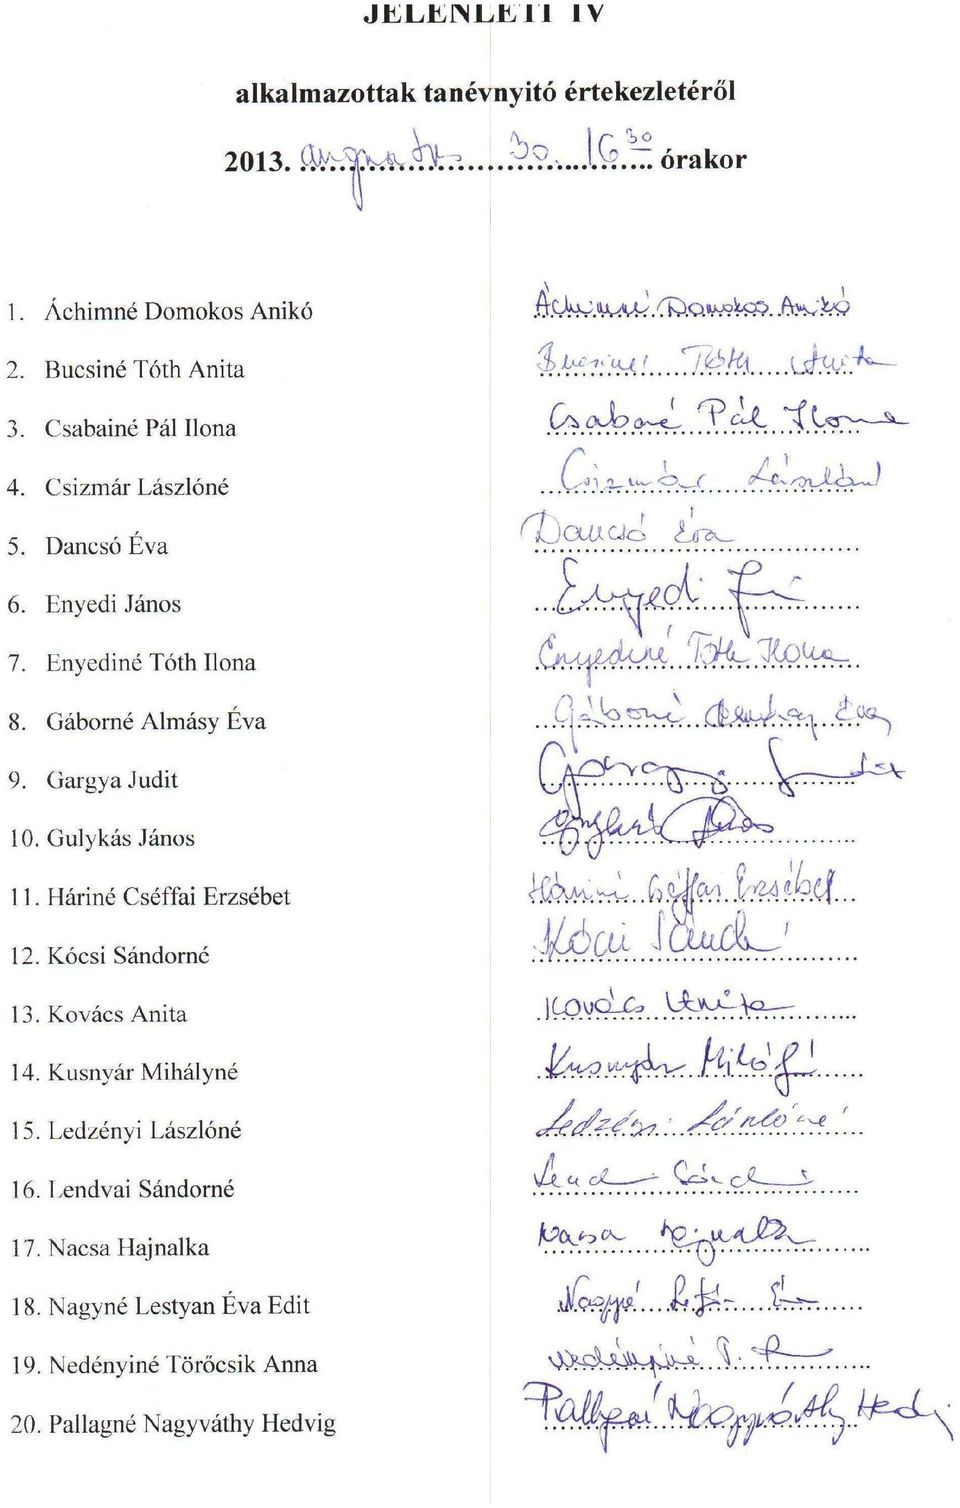 JELENLÉTI ÍV
alkalmazottak tanévnyitó értekezletéről
2013. augusztus 30. 16 30 órakor
1. Áchimné Domokos Anikó Áchimné Domokos Anikó
2. Bucsiné Tóth Anita Bucsiné Tóth Anita
3. Csabainé Pál Ilona Csabainé Pál Ilona
4. Csizmár Lászlóné Csizmár Lászlóné
5. Dancsó Éva Dancsó Éva
6. Enyedi János Enyedi
7. Enyediné Tóth Ilona Enyediné Tóth Ilona
8. Gáborné Almásy Éva Gáborné Almásy Éva
9. Gargya Judit Gargya Judit
10. Gulykás János Gulykás János
11. Háriné Cséffai Erzsébet Háriné Cséffai Erzsébet
12. Kócsi Sándorné Kócsi
13. Kovács Anita Kovács Anita
14. Kusnyár Mihályné Kusnyár
15. Ledzényi Lászlóné Ledzényi Lászlóné
16. Lendvai Sándorné
17. Nacsa Hajnalka Nacsa Hajnalka
18. Nagyné Lestyan Éva Edit Nagyné
19. Nedényiné Törőcsik Anna Nedényiné T.
20. Pallagné Nagyváthy Hedvig Pallagné Nagyváthy Hedvig